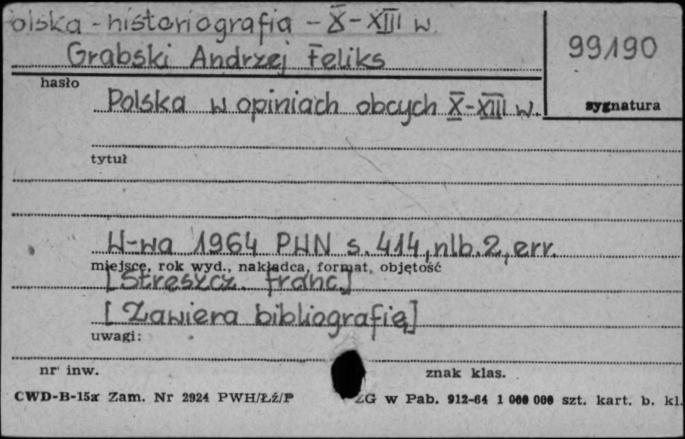 Polska - historiografia - X-XIII w.
Grabski Andrzej Feliks
99190
hasło
Polska w opiniach obcych X-XIII w.
sygnatura
tytuł
W-wa 1964 PWN s. 414, nlb. 2, err.
miejsce, rok wyd., nakładca, format, objętość
[Streszcz. franc.]
[Zawiera bibliografię]
uwagi:
nr inw.
znak klas.
CWD-B-15a Zam. Nr 2924 PWH/Łź/P ZG w Pab. 912-64 1 000 000 szt. kart. b. kl.